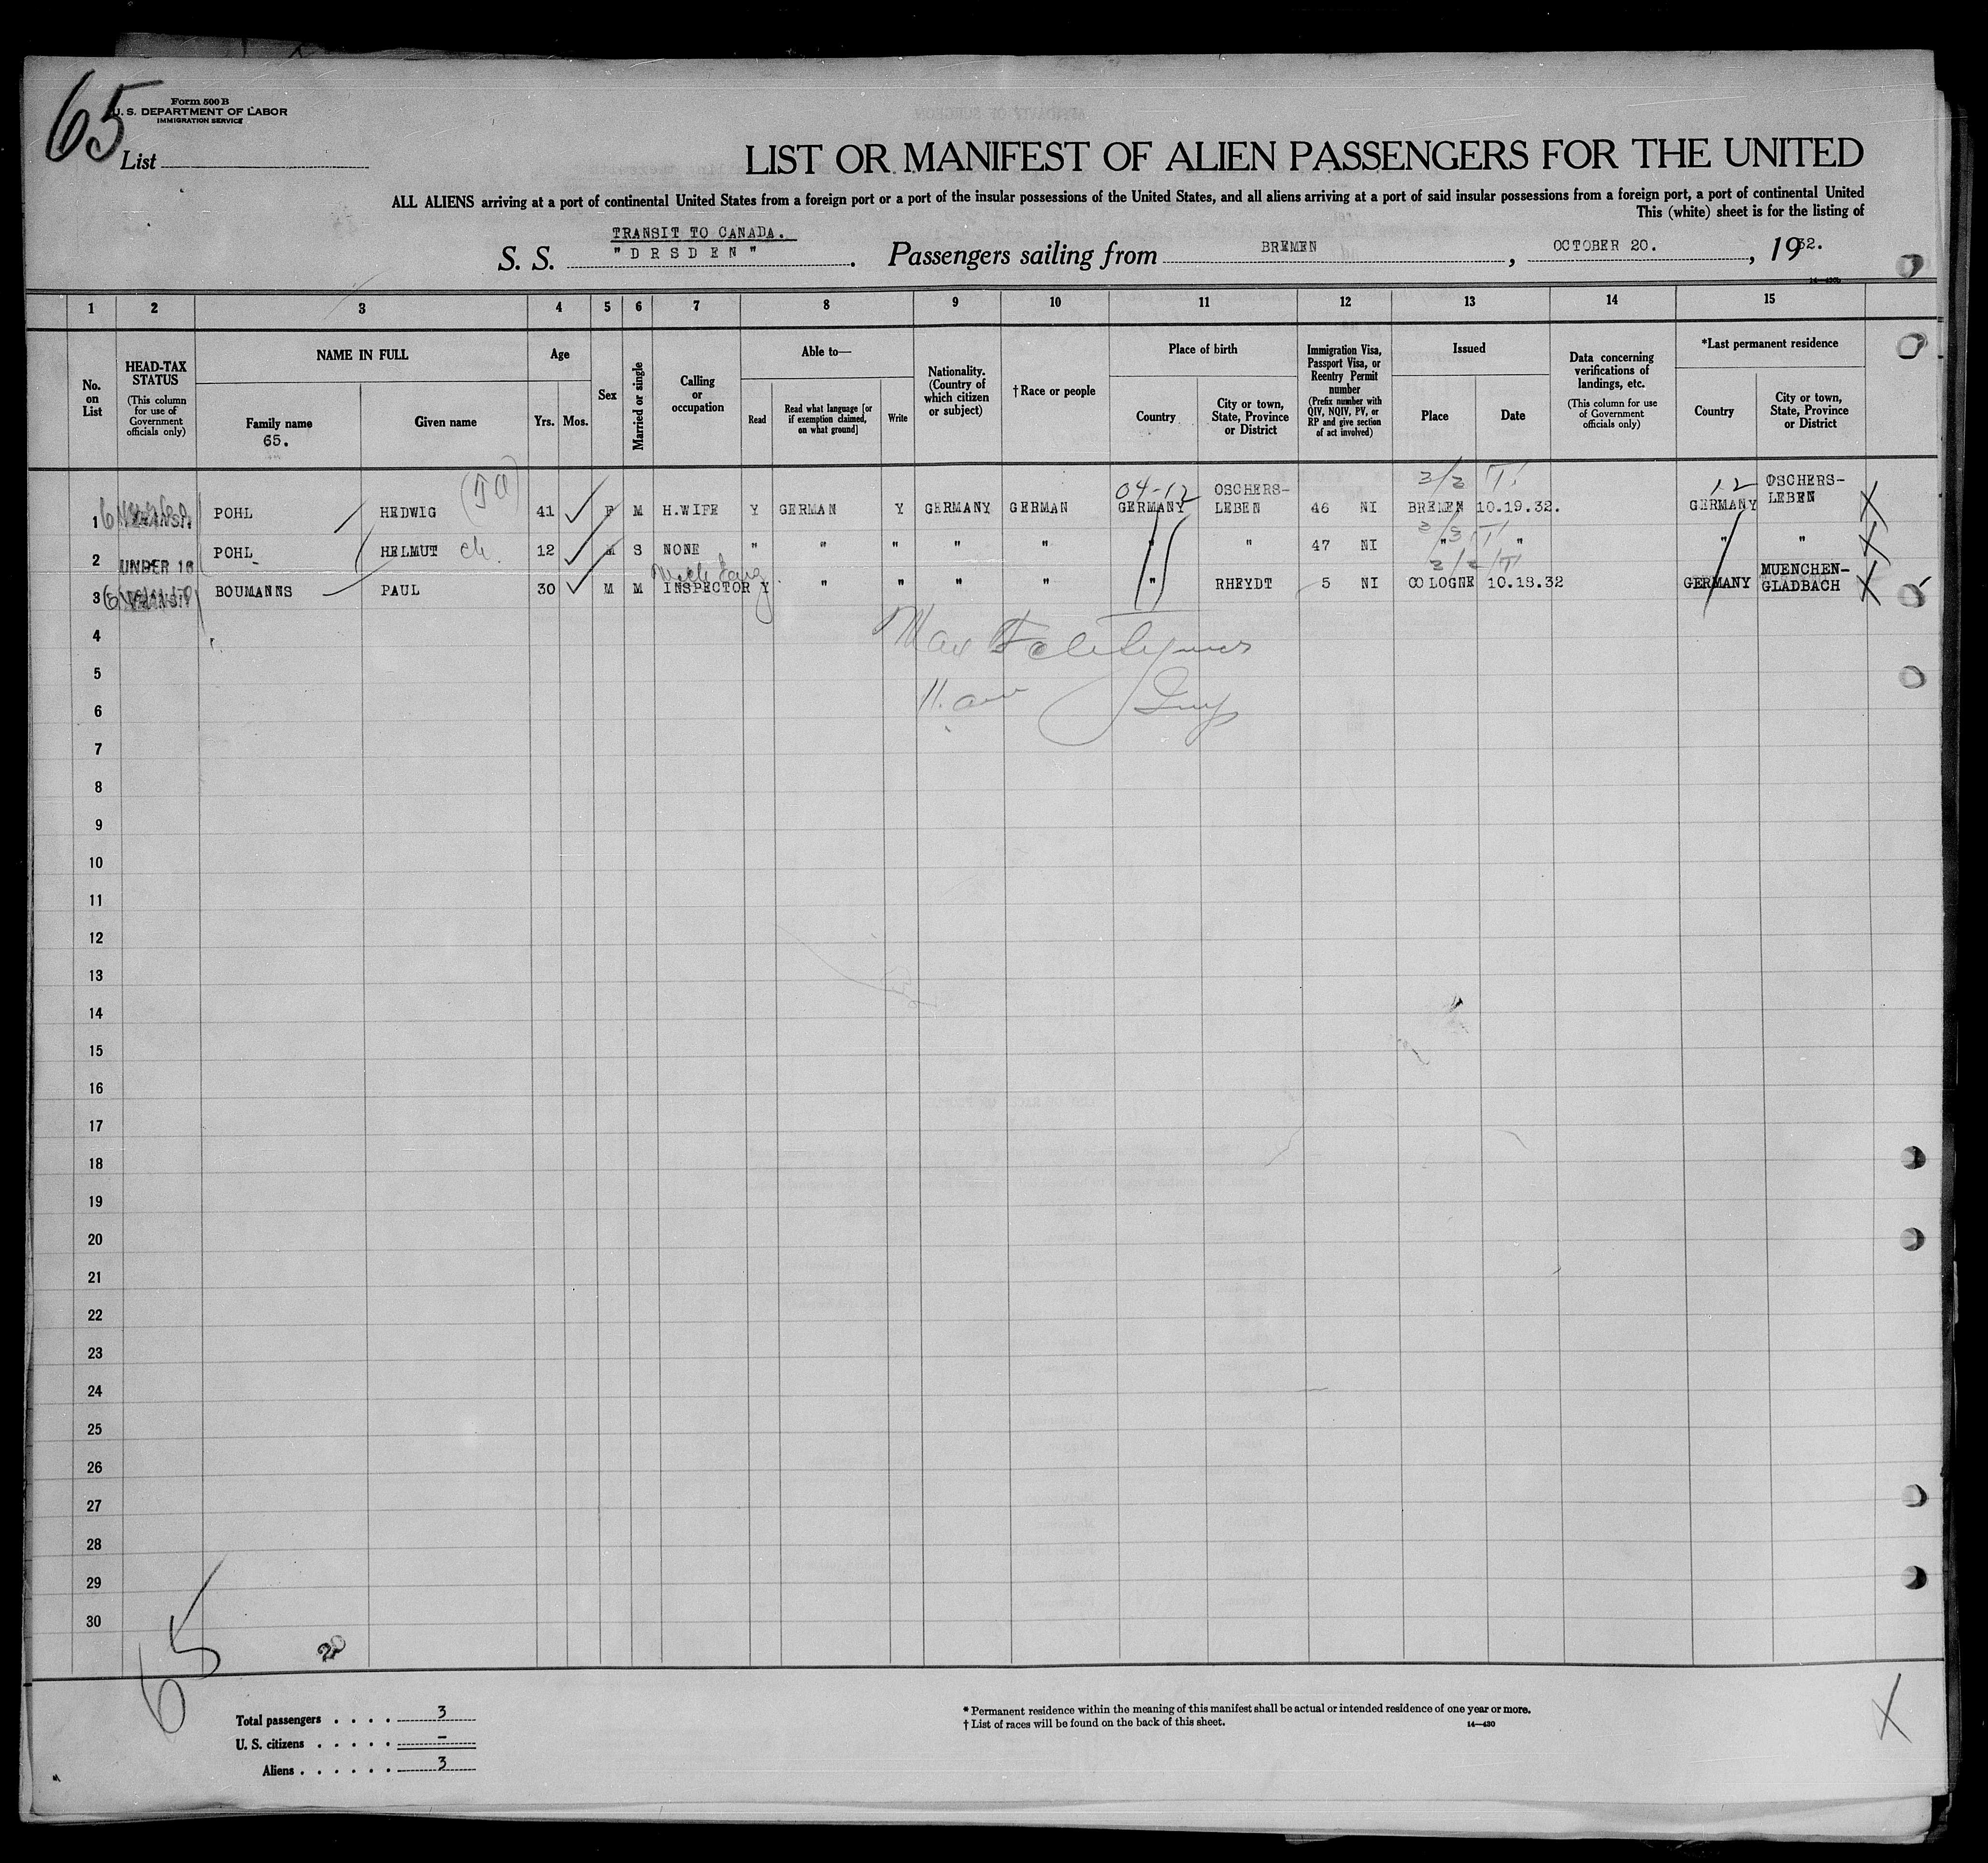 65
Form 500 B
U. S. DEPARTMENT OF LABOR
IMMIGRATION SERVICE
List
LIST OR MANIFEST OF ALIEN PASSENGERS FOR THE UNITED
ALL ALIENS arriving at a port of continental United States from a foreign port or a port of the insular possessions of the United States, and all aliens arriving at a port of said insular possessions from a foreign port, a port of continental United
This (white) sheet is for the listing of
TRANSIT TO CANADA.
S. S. "DRSDEN". Passengers sailing from BREMEN, OCTOBER 20., 1932.
14—430
1 2 3 4 5 6 7 8 9 10 11 12 13 14 15
No. on List
HEAD-TAX STATUS
(This column for use of Government officials only)
NAME IN FULL
Family name
65.
Given name
Age
Yrs. Mos.
Sex
Married or single
Calling or occupation
Able to—
Read
Read what language [or if exemption claimed, on what ground]
Write
Nationality. (Country of which citizen or subject)
†Race or people
Place of birth
Country
City or town, State, Province or District
Immigration Visa, Passport Visa, or Reentry Permit number
(Prefix number with QIV, NQIV, PV, or RP and give section of act involved)
Issued
Place
Date
Data concerning verifications of landings, etc.
(This column for use of Government officials only)
*Last permanent residence
Country
City or town, State, Province or District
04-12 3/3 T! 12
1 POHL HEDWIG 41 F M H.WIFE Y GERMAN Y GERMANY GERMAN GERMANY OSCHERS-LEBEN 46 NI BREMEN 10.19.32. GERMANY OSCHERS-LEBEN X
2 UNDER 16 POHL HELMUT ch. 12 M S NONE " " " " " " " 47 NI " " " " X
3 BOUMANNS PAUL 30 M M INSPECTOR Y " " " " " RHEYDT 5 NI COLOGNE 10.18.32 GERMANY MUENCHEN-GLADBACH X
4
5
6
7
8
9
10
11
12
13
14
15
16
17
18
19
20
21
22
23
24
25
26
27
28
29
30
65
Total passengers . . . . 3
U. S. citizens . . . . . –
Aliens . . . . . . 3
* Permanent residence within the meaning of this manifest shall be actual or intended residence of one year or more.
† List of races will be found on the back of this sheet.
14—430
X